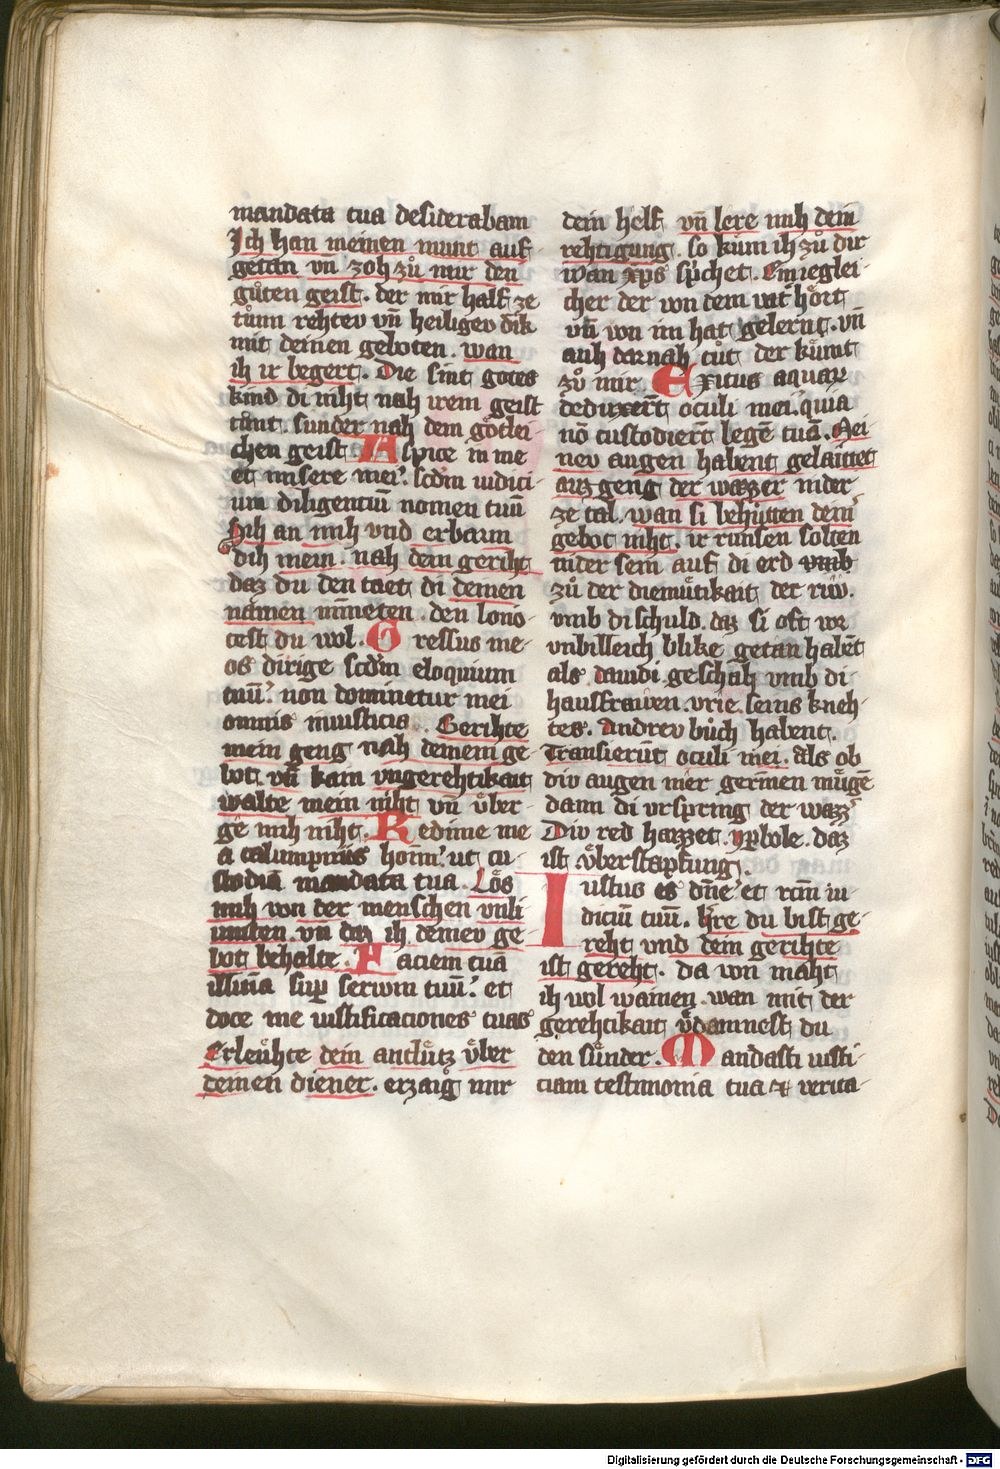 mandata tua desiderabam
Ich han meinen munt auf
getan vn̄ zoh zů mir den
gůten geist. der mir half ze
tůnn rehtev vn̄ heiligev dik
mit deinen geboten. wan
ih ir begert. Die sint gotes
kind di niht nah irem geist
tůnt. sunder nah dem gőtlei-
chen geist Aspice in me
et miserere mei. scd̄m iudici-
um diligentiū nomen tuū
Sih an mih vnd erbarm
dih mein. nah dem geriht
daz du den taet di deinen
namen minneten. den lono-
test du wol. Gressus me-
os dirige scd̄m eloquium
tuū. non dominetur mei
omnis iniusticia. Gerihte
mein geng nah deinem ge
bot vn̄ kain vngerehtikait
walte mein niht vn̄ v̊ber-
ge mih niht. Redime me
a calumpniis hoīm. ut cu-
stodiā mandata tua. Lős
mih von der menschen vnli
vn̄ daz ih deinev ge
bot behalte. Faciem tuā
illuīa sup̄ servum tuū. et
doce me iustificaciones tuas
Erleůhte dein antlůtz v̊ber
deinen diener. erzaig mir
dein helf vn̄ lere mih dein
rehtigung. so kům ih zů dir
wan xp̄s sp̓chet. Ein ieglei-
cher der von dem vat̓ hőrt
vn̄ von im hat gelernt. vn̄
auh dar nah tůt der kůmt
zů mir Exitus aquar
deduxer̄t oculi mei. quia
nō custodier̄t legē tuā. Mei-
nev augen habent gelaittet
auzgeng der wazzer nider
ze tal. wan si behůtten dein
gebot niht. ir runsen solten
nider sein auf di erd vmb
zů der diemůtikait der riw.
vmb di schuld. daz si oft vor
vnbilleich blike getan habēt
als dauidi geschah vmb di
hausfrawen. vrie. seins kneh-
tes. Andrev bůch habent.
Transierūt oculi mei. Als ob
div augen mer germ̄en můgē
dann di vrspring der wazz̓
Div red haizzet. yp̱bole. daz
ist v̊berstapfung.
Iustus es dn̄e et rctm̄ iu-
diciū tuū. Hre du bist ge-
reht vnd dein gerihte
ist gereht. da von maht
ih wol wainen. wan mit der
gerehtikait v̊damnest du
den sůnder. Mandasti iusti-
ciam testimonia tua & verita-
Digitalisierung gefördert durch die Deutsche Forschungsgemeinschaft - DFG